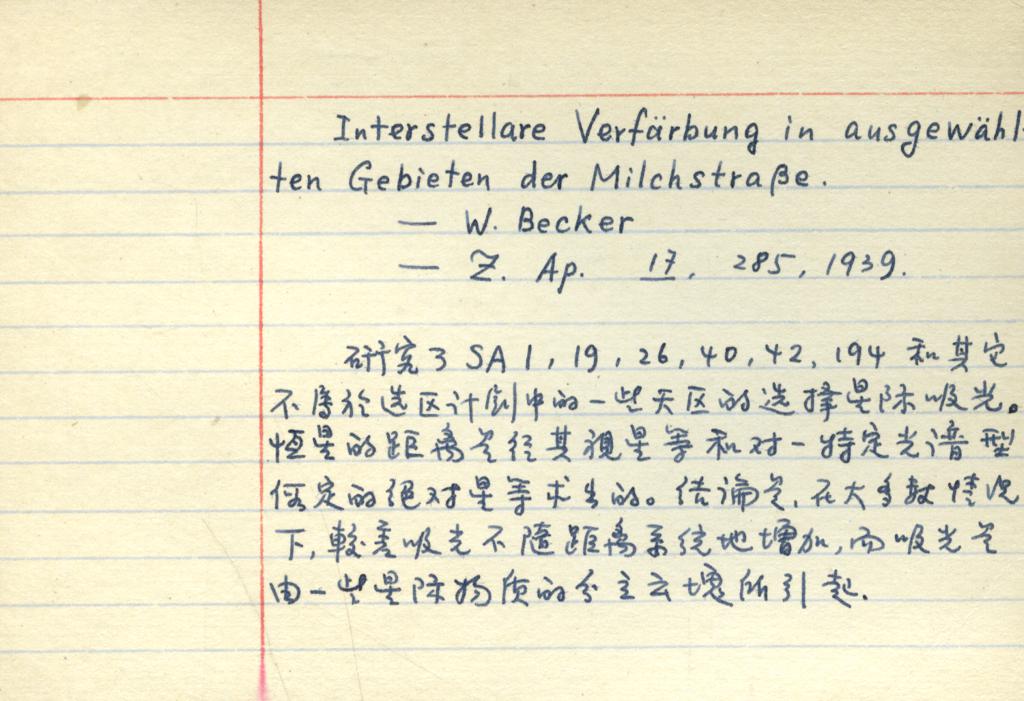 Interstellare Verfärbung in ausgewähl-
ten Gebieten der Milchstraße.
— W. Becker
— Z. Ap. 17, 285, 1939.
研究了 SA 1, 19, 26, 40, 42, 194 和其它
不属於选区计划中的一些天区的选择星际吸光。
恒星的距离是径其視星等和对一特定光谱型
假定的绝对星等求出的。结论是,在大多数情况
下,較差吸光不随距离系统地增加,而吸光是
由一些星际物质的分立云塊所引起.